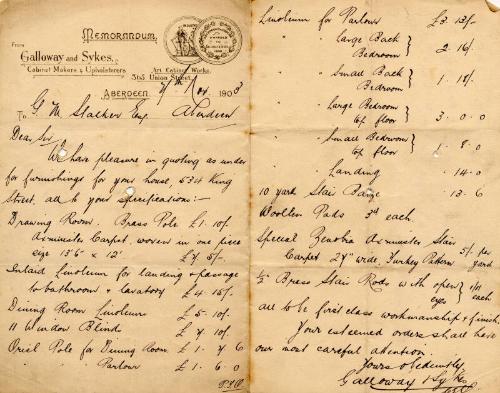 MEMORANDUM.
From
Galloway and Sykes,
Cabinet Makers & Upholsterers
Art Cabinet Works,
Union Street,
ABERDEEN, 1903
To G. M. Slacker Esq. Aberdeen
Dear Sir,
We have pleasure in quoting as under
for furnishings for your house, 534 King
Street, all to your specifications:-
Drawing Room. Brass Pole £1. 10/-
Axminster Carpet, woven in one piece
size 13'6" x 12' £7. 5/-
Inlaid Linoleum for landing & passage
to bathroom & lavatory £4. 15/-
Dining Room Linoleum £5. 10/-
11 Window Blinds £4. 10/-
Oriel Pole for Dining Room £1. 7. 6
" " " Parlour £1. 6. 0
P.T.O.
Linoleum for Parlour £3. 13/-
" Large Back Bedroom } 2. 16/-
" Small Back Bedroom } 1. 18/-
" Large Bedroom top floor } 3. 0. 0
" Small Bedroom top floor } 1. 8. 0
" Landing 14. 0
10 yards Stair Baize 13. 6
Woollen Pads 3d each.
Special Zenobia Axminster Stair
Carpet 27" wide, Turkey Pattern 5/- per yard
1/2" Brass Stair Rods with open eyes } 1/11 each
all to be first class workmanship & finish.
Your esteemed orders shall have
our most careful attention.
Yours obediently,
Galloway & Sykes